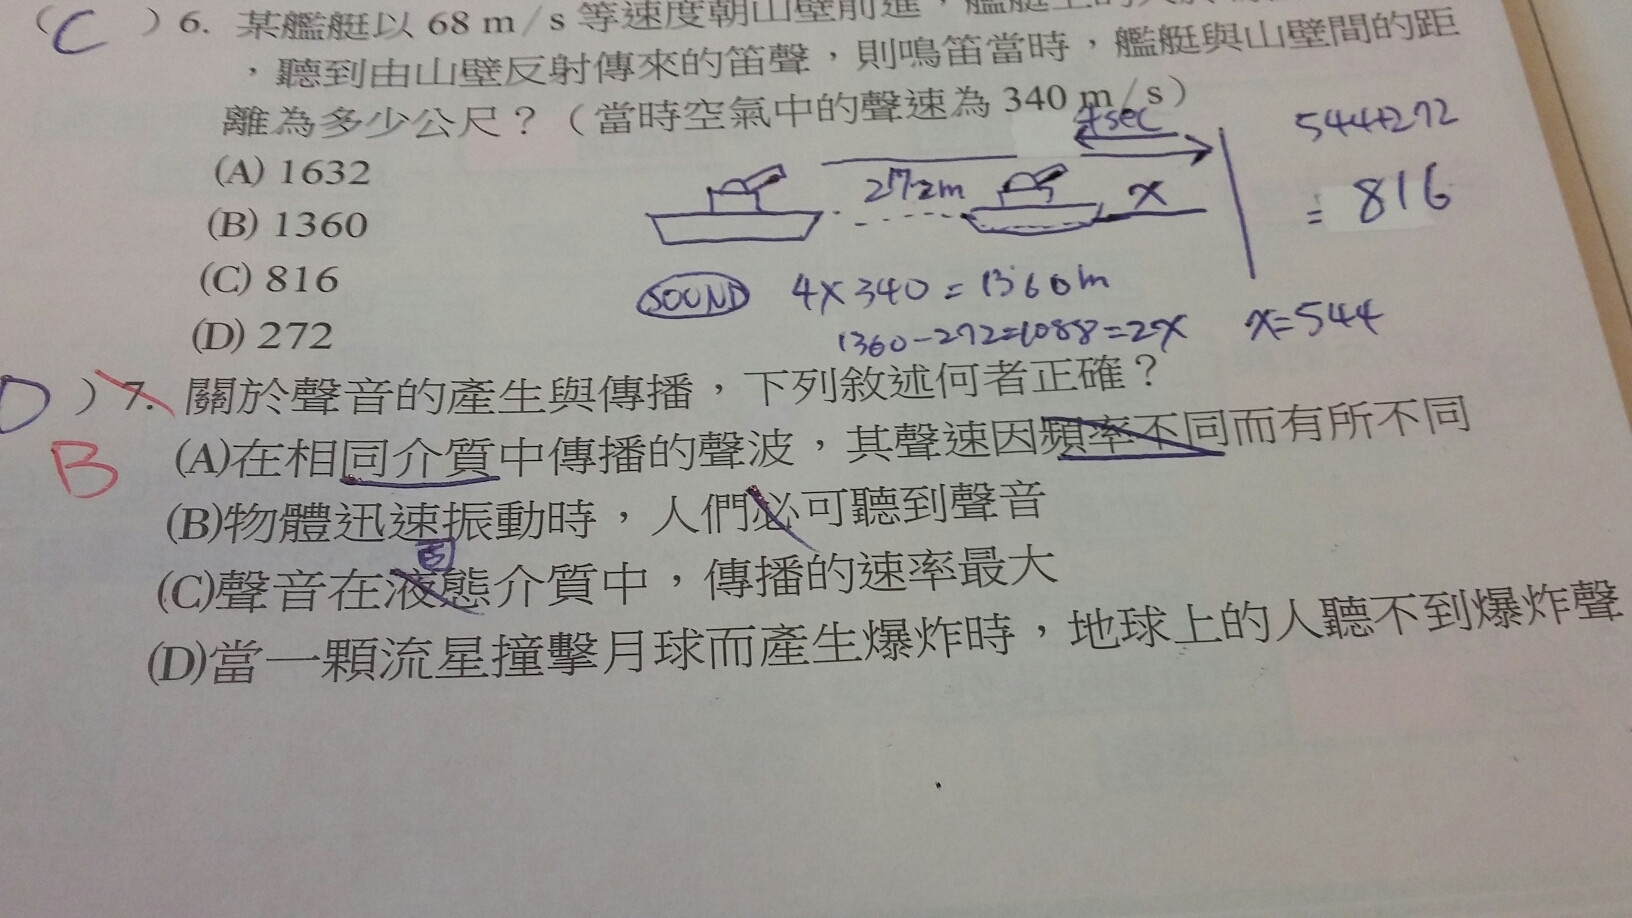 (C) 6. 某艦艇以 68 m/s 等速度朝山壁前進，艦艇上的
，聽到由山壁反射傳來的笛聲，則鳴笛當時，艦艇與山壁間的距
離為多少公尺？（當時空氣中的聲速為 340 m/s）
4sec
544+272
(A) 1632
272m
x
= 816
(B) 1360
(C) 816
SOUND 4×340=1360m
(D) 272
1360-272=1088=2x x=544
D ) 7. 關於聲音的產生與傳播，下列敘述何者正確？
B
(A)在相同介質中傳播的聲波，其聲速因頻率不同而有所不同
(B)物體迅速振動時，人們必可聽到聲音
(C)聲音在液態介質中，傳播的速率最大
(D)當一顆流星撞擊月球而產生爆炸時，地球上的人聽不到爆炸聲